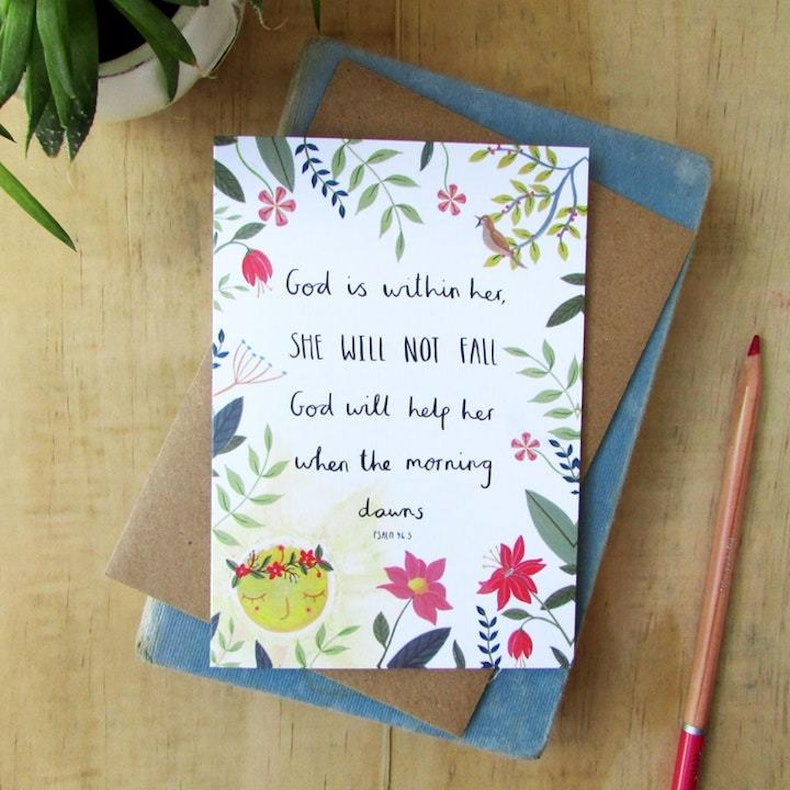 God is within her,
SHE WILL NOT FALL
God will help her
when the morning
dawns
PSALM 46:5